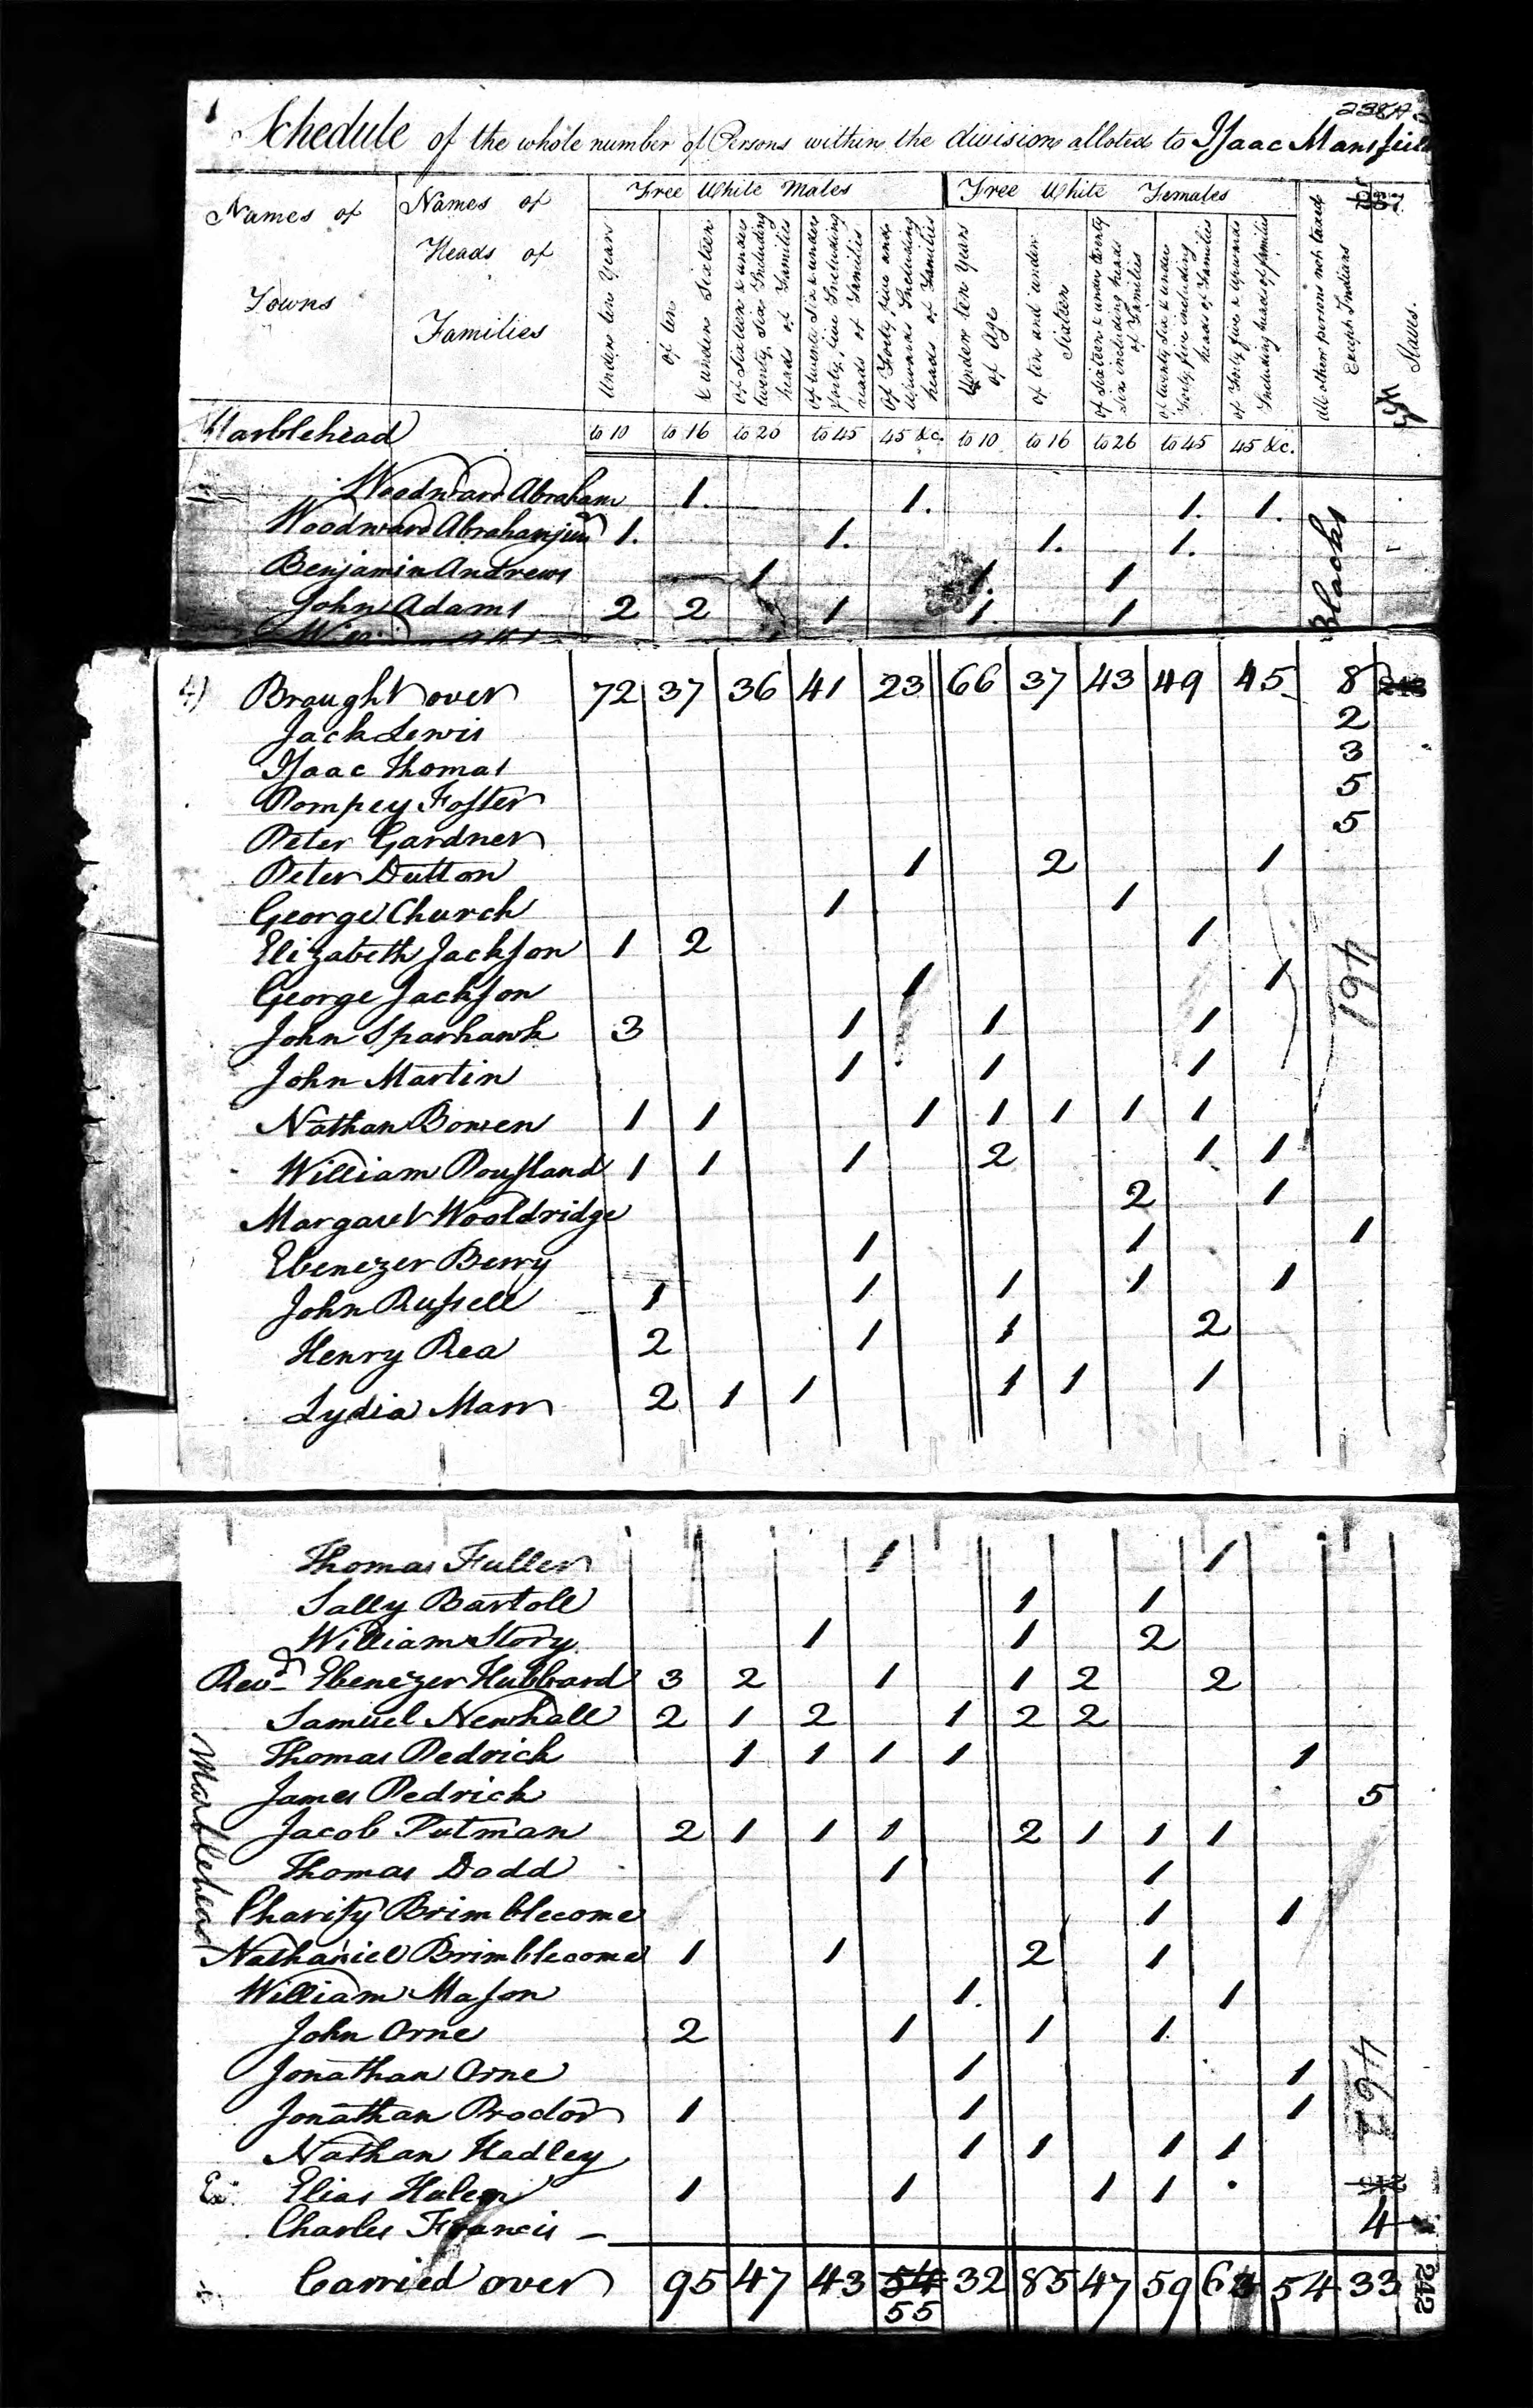 1
238A
Schedule of the whole number of Persons within the division alloted to Isaac Mansfield
Names of Towns
Names of Heads of Families
Free White Males
Free White Females
237
Under ten Years
of ten & under Sixteen
of Sixteen & under twenty Six Including heads of Families
of twenty Six & under forty five Including heads of Families
Of Forty five and Upwards Including heads of Families
Under ten Years of Age
of ten and under Sixteen
of Sixteen & under twenty Six including heads of Families
of twenty Six & under Forty five including heads of Families
of Forty five & Upwards Including heads of families
all other persons not taxed Except Indians
Slaves.
Marblehead to 10 to 16 to 26 to 45 45 &c. to 10 to 16 to 26 to 45 45 &c.
Woodward Abraham 1. 1. 1. 1.
Woodward Abraham jun 1. 1. 1. 1.
Benjamin Andrews 1 1. 1
John Adams 2 2 1 1. 1
Blacks
4) Braught over 72 37 36 41 23 66 37 43 49 45 8
Jack Lewis 2
Isaac Thomas 3
Pompey Foster 5
Peter Gardner 5
Peter Dutton 1 2 1
George Church 1 1
Elizabeth Jackson 1 2 1
George Jackson 1 1
John Sparhawk 3 1 1 1
John Martin 1 1 1
Nathan Bowen 1 1 1 1 1 1 1
William Rousland 1 1 1 2 1 1
Margaret Wooldridge 2 1
Ebenezer Berry 1 1 1
John Russell 1 1 1 1 1
Henry Rea 2 1 1 2
Lydia Marr 2 1 1 1 1 1
461
Thomas Fuller 1 1
Sally Bartoll 1 1
William Story 1 1 2
Revd Ebenezer Hubbard 3 2 1 1 2 2
Samuel Newhall 2 1 2 1 2 2
Thomas Pedrick 1 1 1 1 1
James Pedrick 5
Jacob Putman 2 1 1 1 2 1 1 1
Thomas Dodd 1 1
Charity Brimblecome 1 1
Nathaniel Brimblecome 1 1 2 1
William Mason 1. 1
John Orne 2 1 1 1.
Jonathan Orne 1 1
Jonathan Proctor 1 1 1
Nathan Hadley 1 1 1 1
Ex. Elias Hulen 1 1 1 1
Charles Francis 4
Marblehead
462
Carried over 95 47 43 54 32 85 47 59 63 54 33
55
242